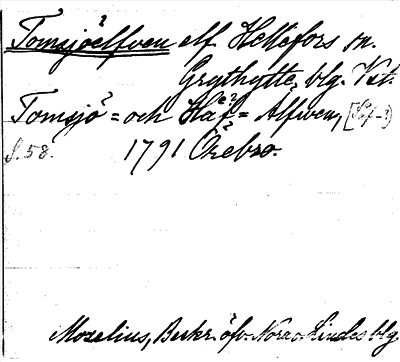 Tomsjöelfven elf. Hellefors sn.
Grythytte blg. Vst.
Tomsjö = och Haf = Alfwen,
S. 58. 1791 Örebro.
Moselius, Beskr. öfv. Norra Lindes blg.